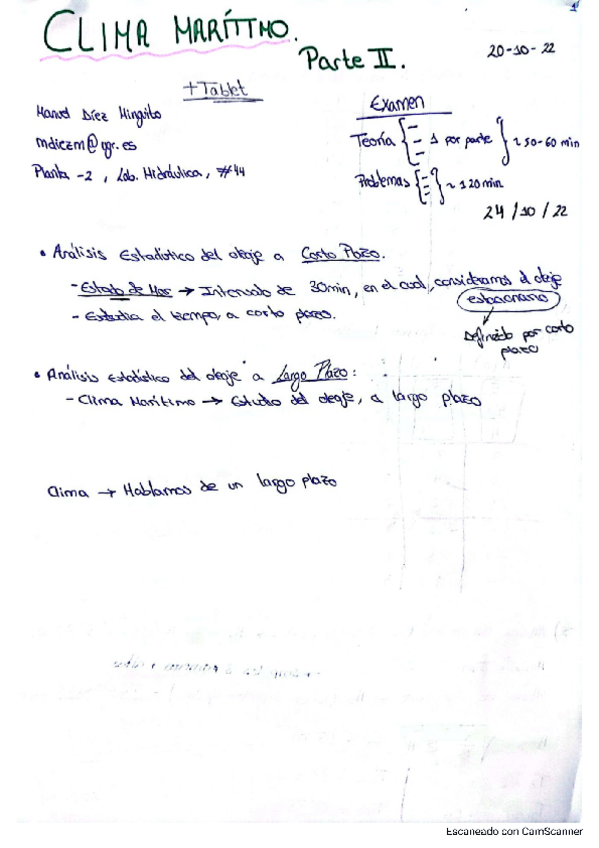 1
CLIMA MARÍTIMO.
Parte II.
20-10-22
+Tablet
Manuel Díez Minguito
mdiezm@ugr.es
Planta -2, Lab. Hidráulica, #44
Examen
Teoría { 1 por parte } ~ 50-60 min
Problemas { } ~ 120 min
24/10/22
• Análisis Estadístico del oleaje a Corto Plazo.
- Estado de Mar → Intervalo de 30min, en el cual, consideramos el oleaje
estacionario
- Estudia el tiempo, a corto plazo.
Definido por corto
plazo
• Análisis Estadístico del oleaje a Largo Plazo:
- Clima Marítimo → Estudio del oleaje, a largo plazo
Clima → Hablamos de un largo plazo
Escaneado con CamScanner